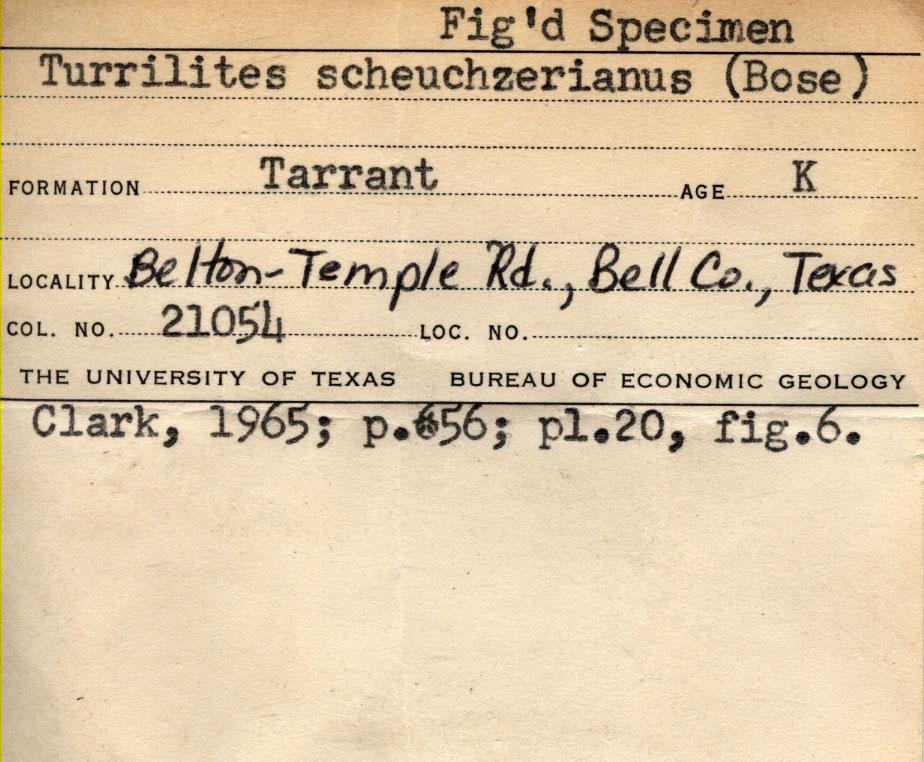 Fig'd Specimen
Turrilites scheuchzerianus (Bose)
FORMATION Tarrant AGE K
LOCALITY Belton-Temple Rd., Bell Co., Texas
COL. NO. 21054 LOC. NO.
THE UNIVERSITY OF TEXAS BUREAU OF ECONOMIC GEOLOGY
Clark, 1965; p.56; pl.20, fig.6.